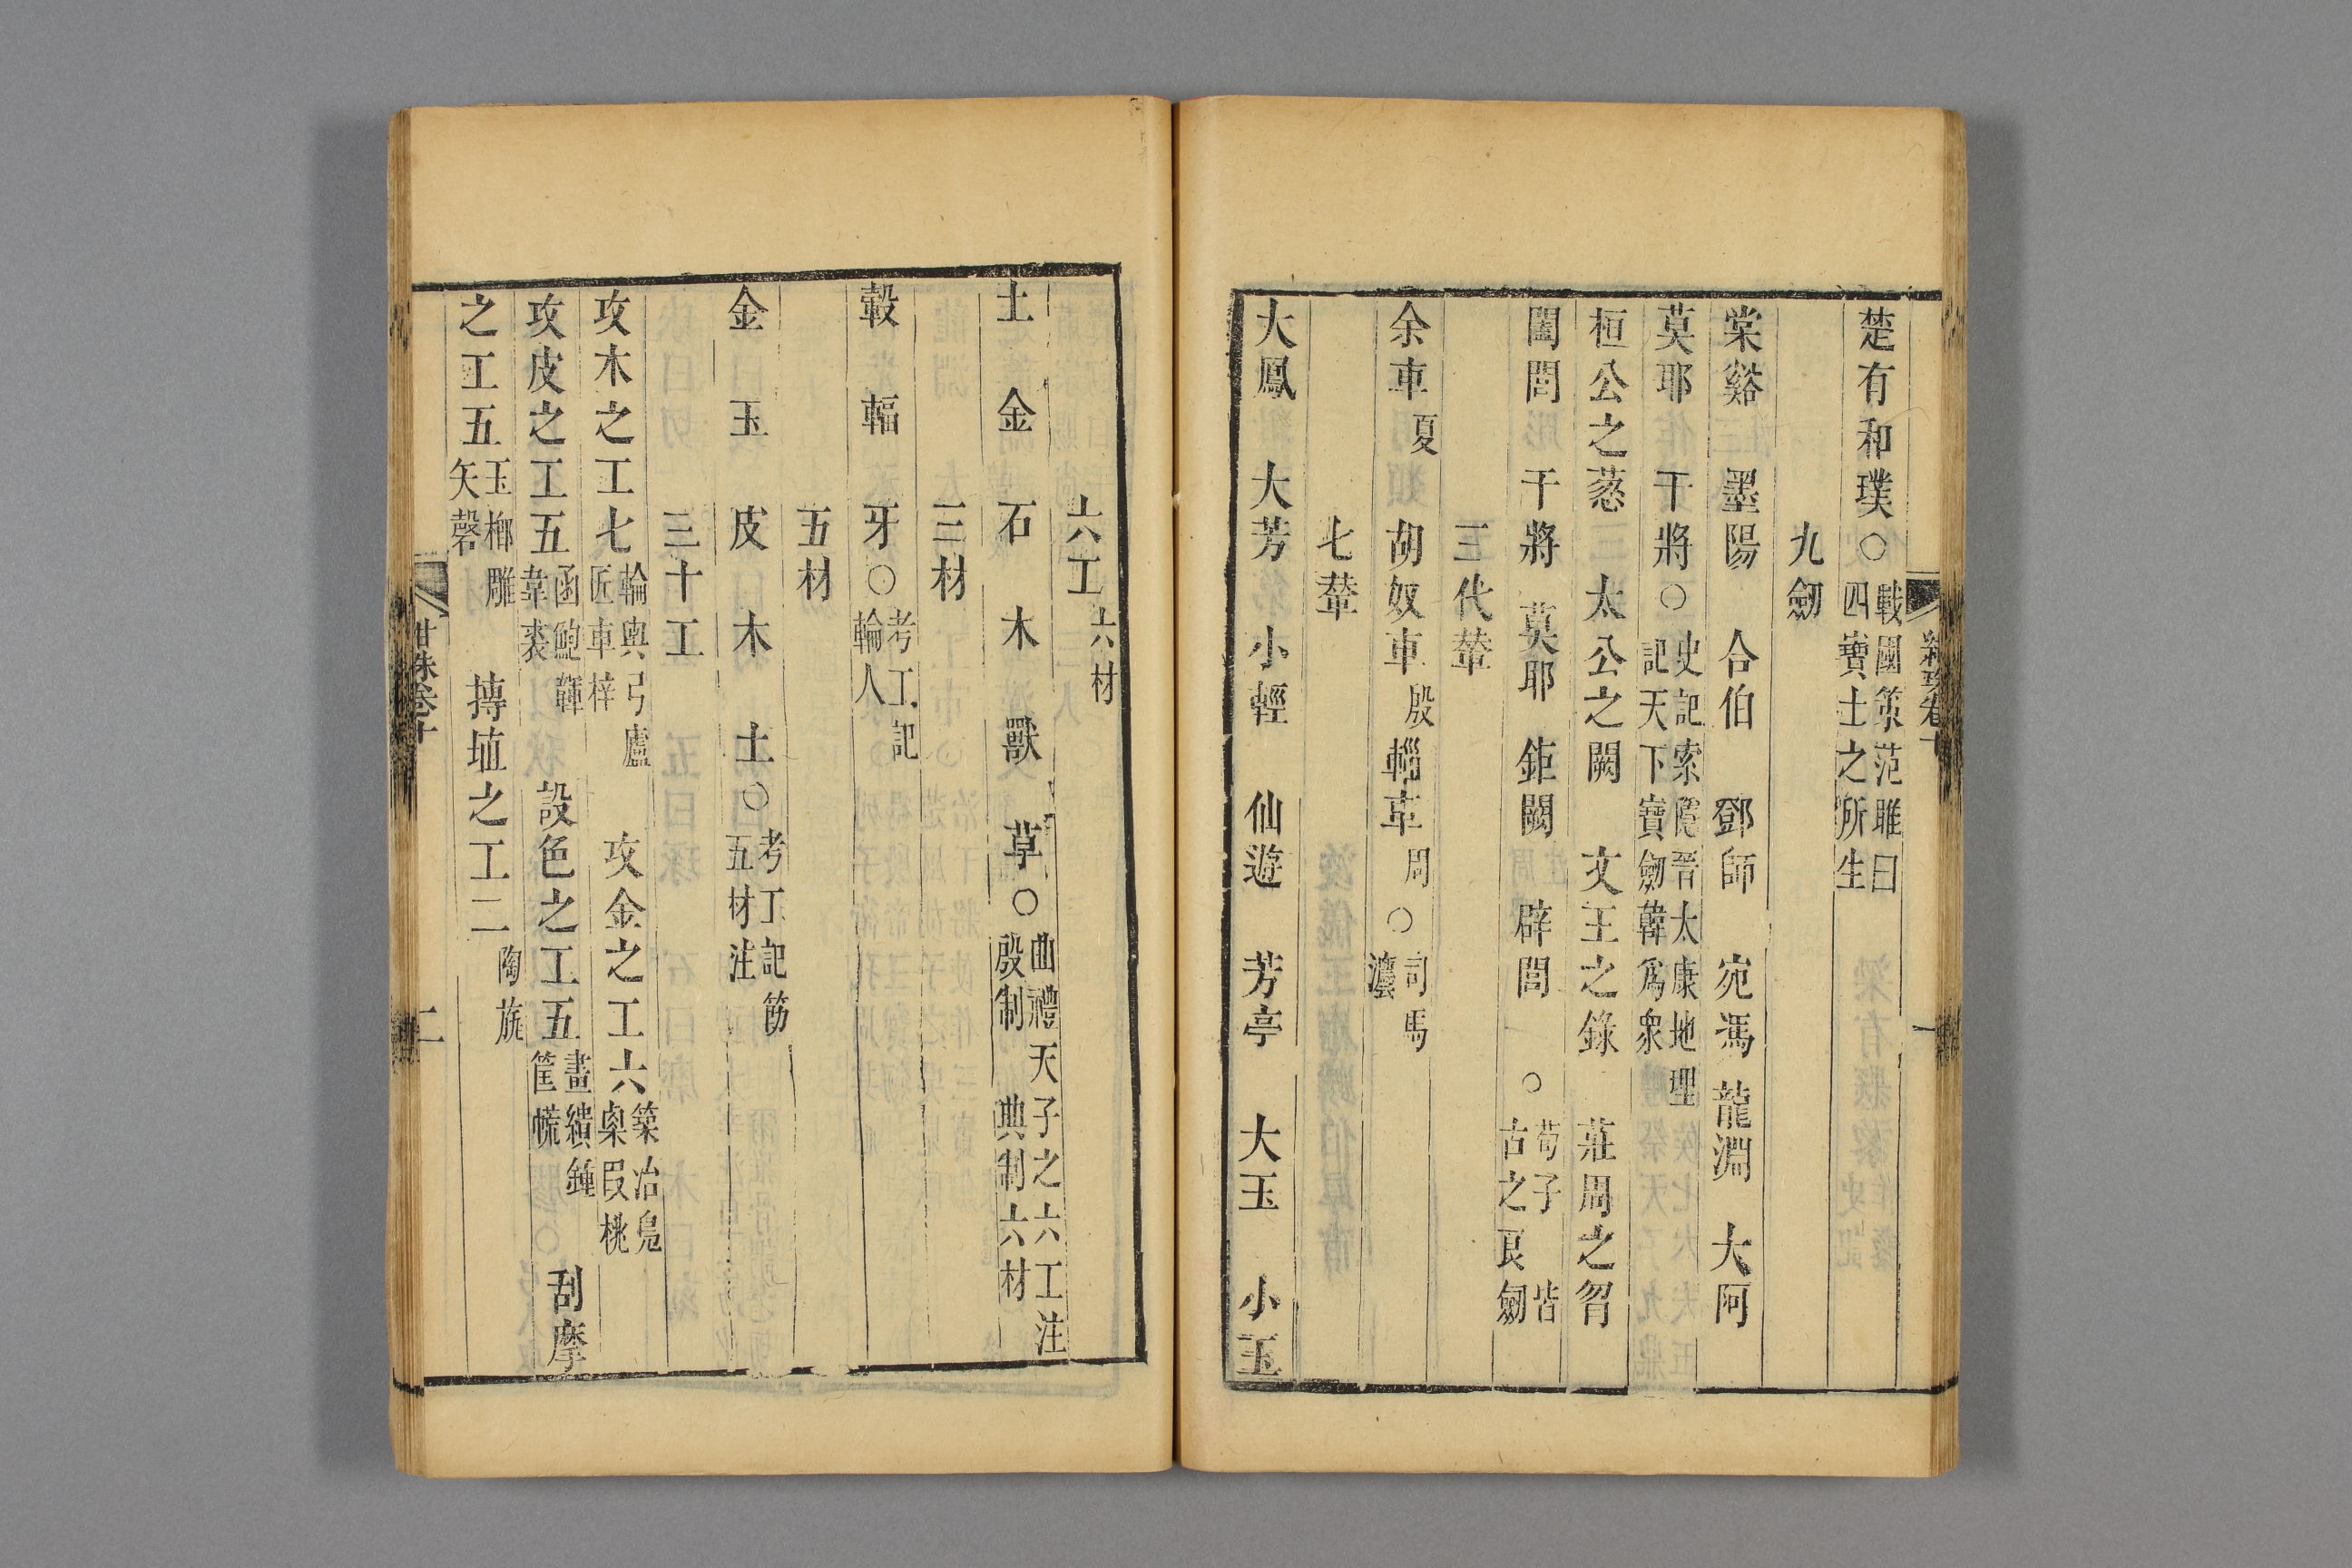 楚有和璞○戰國策范雎曰四寶士之所生
九劒
棠谿 墨陽 合伯 鄧師 宛馮 龍淵 大阿
莫耶 干將○史記索隱晉太康地理記天下寶劒韓爲衆
桓公之蔥 太公之闕 文王之錄 莊周之曶
闔閭 干將 莫耶 鉅闕 辟閭 ○荀子皆古之良劒
三代輦
余車夏 胡奴車殷 輜車周 ○司馬灋
七輦
大鳳 大芳 小輕 仙遊 芳亭 大玉 小玉
六工六材
土 金 石 木 獸 草○曲禮天子之六工注殷制 典制六材
三材
轂 輻 牙○考工記輪人
五材
金 玉 皮 木 土○考工記飭五材注
三十工
攻木之工七輪輿弓廬匠車梓 攻金之工六築冶鳧㮚段桃
攻皮之工五函鮑韗韋裘 設色之工五畫繢鍾筐㡛 刮摩
之工五玉楖雕矢磬 摶埴之工二陶旊
甘珠卷十
二